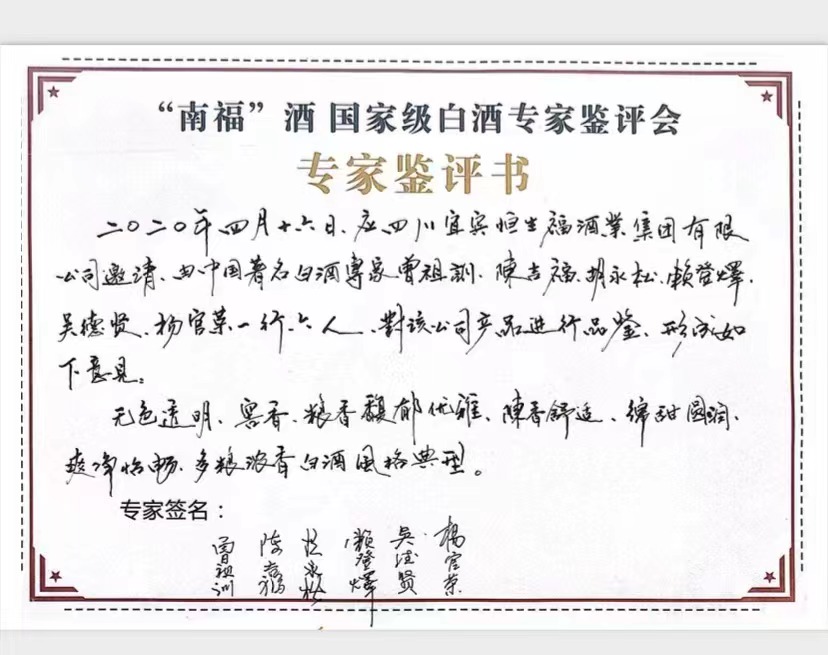 “南福”酒 国家级白酒专家鉴评会
专家鉴评书
二〇二〇年四月十六日、应四川宜宾恒生福酒业集团有限
公司邀请、由中国著名白酒專家曾祖訓、陳吉福、胡永松、賴登燡、
吴德贤、杨官荣一行六人、對该公司产品进行品鉴、形成如
下意見:
无色透明、窖香、粮香馥郁优雅、陳香舒适、绵甜圆润、
爽净怡畅、多粮浓香白酒风格典型。
专家签名：
曾祖训 陈吉福 胡永松 賴登燡 吴德贤 杨官荣